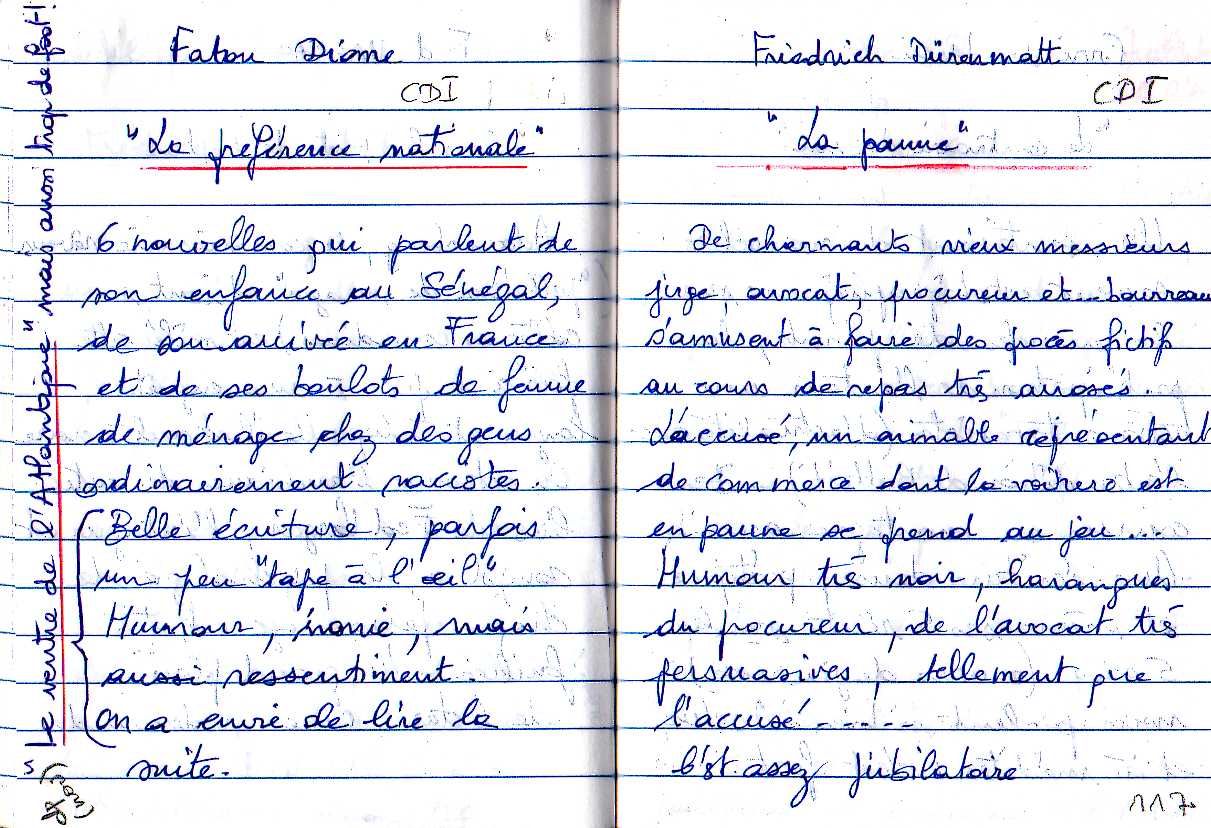 Fatou Diome
CDI
"La préférence nationale"
6 nouvelles qui parlent de
son enfance au Sénégal,
de son arrivée en France
et de ses boulots de femme
de ménage chez des gens
ordinairement racistes.
Belle écriture, parfois
un peu "tape à l'œil"
Humour, ironie, mais
aussi ressentiment.
On a envie de lire la
suite.
"Le ventre de l'Atlantique" mais aussi trop de foot!
Friedrich Dürenmatt
CDI
"La panne"
De charmants vieux messieurs
juge, avocat, procureur et... bourreau
s'amusent à faire des procès fictifs
au cours de repas très arrosés.
L'accusé, un aimable représentant
de commerce dont la voiture est
en panne se prend au jeu...
Humour très noir, harangues
du procureur, de l'avocat très
persuasives, tellement que
l'accusé.....
C'est assez jubilatoire
117